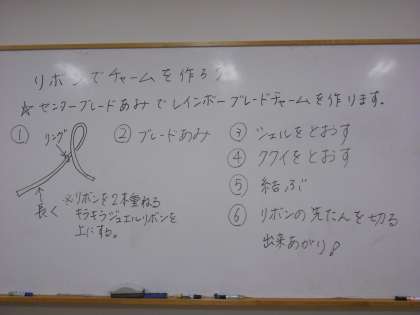 リボンでチャームを作ろう
☆センターブレードあみでレインボーブレードチャームを作ります。
① リング
長く
※リボンを2本重ねる
キラキラジュエルリボンを
上にする。
② ブレードあみ
③ シェルをとおす
④ ククイをとおす
⑤ 結ぶ
⑥ リボンの先たんを切る
出来あがり♪